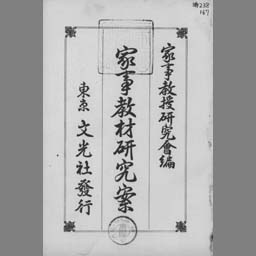 家事教授研究會編
家事教材研究案
東京 文光社發行